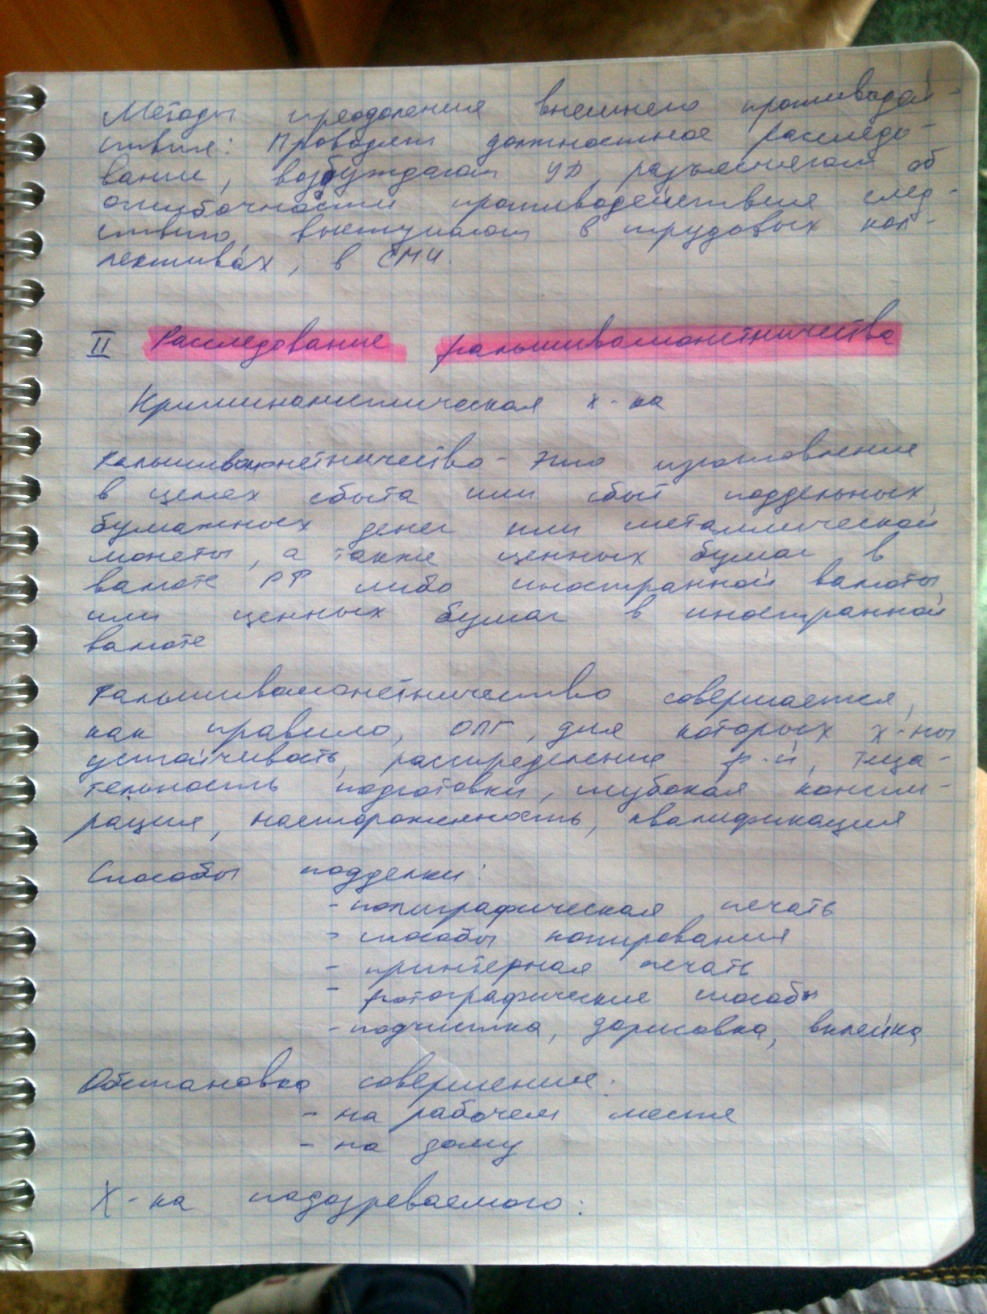 Методы преодоления внешнего противодей-
ствия: Проводят должностное расследо-
вание, возбуждают УД, разъясняют об
ошибочности противодействия след-
ствию, выступают в трудовых кол-
лективах, в СМИ.
II Расследование фальшивомонетничества
Криминалистическая х-ка
Фальшивомонетничество - это изготовление
в целях сбыта или сбыт поддельных
бумажных денег или металлической
монеты, а также ценных бумаг в
валюте РФ либо иностранной валюты
или ценных бумаг в иностранной
валюте
Фальшивомонетничество совершается,
как правило, ОПГ, для которых х-ны
устойчивость, распределение р-й, тща-
тельность подготовки, глубокая конспи-
рация, настороженность, квалификация
Способы подделки:
- полиграфическая печать
- способы копирования
- принтерная печать
- фотографические способы
- подчистка, дорисовка, вклейка
Обстановка совершения:
- на рабочем месте
- на дому
Х-ка подозреваемого: